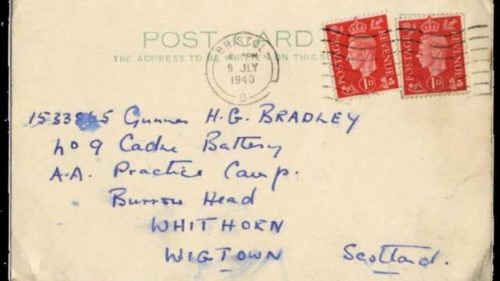 POST CARD
THE ADDRESS TO BE WRITTEN ON THIS
BRISTOL
9 JLY
1940
POSTAGE REVENUE
1D
POSTAGE REVENUE
1D
Gunner H.G. BRADLEY
No 9 Cadre Battery
A.A. Practice Camp.
Burrow Head
WHITHORN
WIGTOWN Scotland.